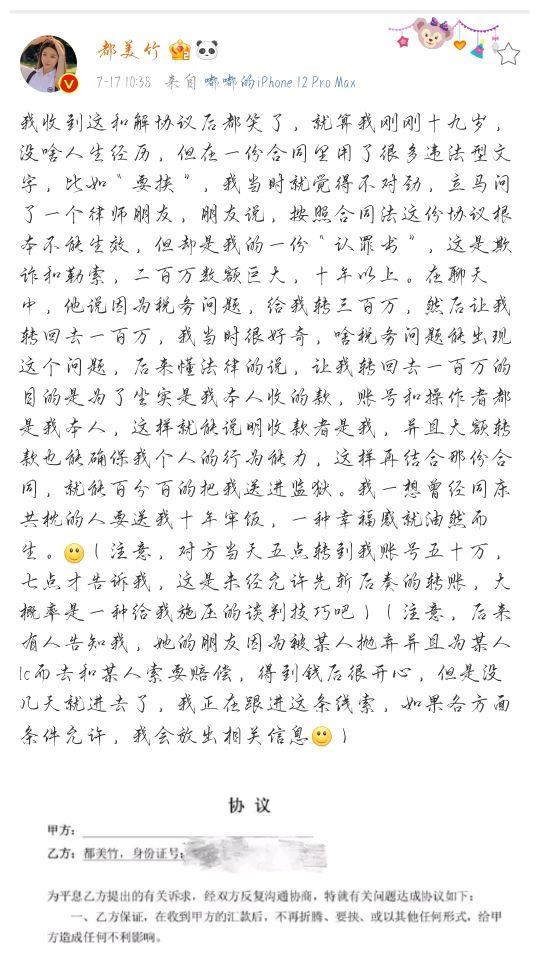 都美竹
7-17 10:38 来自 嘟嘟的iPhone 12 Pro Max
我收到这和解协议后都笑了，就算我刚刚十九岁，
没啥人生经历，但在一份合同里用了很多违法型文
字，比如“要挟”，我当时就觉得不对劲，立马问
了一个律师朋友，朋友说，按照合同法这份协议根
本不能生效，但却是我的一份“认罪书”，这是欺
诈和勒索，二百万数额巨大，十年以上。在聊天
中，他说因为税务问题，给我转三百万，然后让我
转回去一百万，我当时很好奇，啥税务问题能出现
这个问题，后来懂法律的说，让我转回去一百万的
目的是为了坐实是我本人收的款，账号和操作者都
是我本人，这样就能说明收款者是我，并且大额转
款也能确保我个人的行为能力，这样再结合那份合
同，就能百分百的把我送进监狱。我一想曾经同床
共枕的人要送我十年牢饭，一种幸福感就油然而
生。（注意，对方当天五点转到我账号五十万，
七点才告诉我，这是未经允许先斩后奏的转账，大
概率是一种给我施压的谈判技巧吧）（注意，后来
有人告知我，她的朋友因为被某人抛弃并且为某人
lc而去和某人索要赔偿，得到钱后很开心，但是没
几天就进去了，我正在跟进这条线索，如果各方面
条件允许，我会放出相关信息）
协议
甲方：
乙方：都美竹，身份证号：
为平息乙方提出的有关诉求，经双方反复沟通协商，特就有关问题达成协议如下：
一、乙方保证，在收到甲方的汇款后，不再折腾、要挟、或以其他任何形式，给甲
方造成任何不利影响。